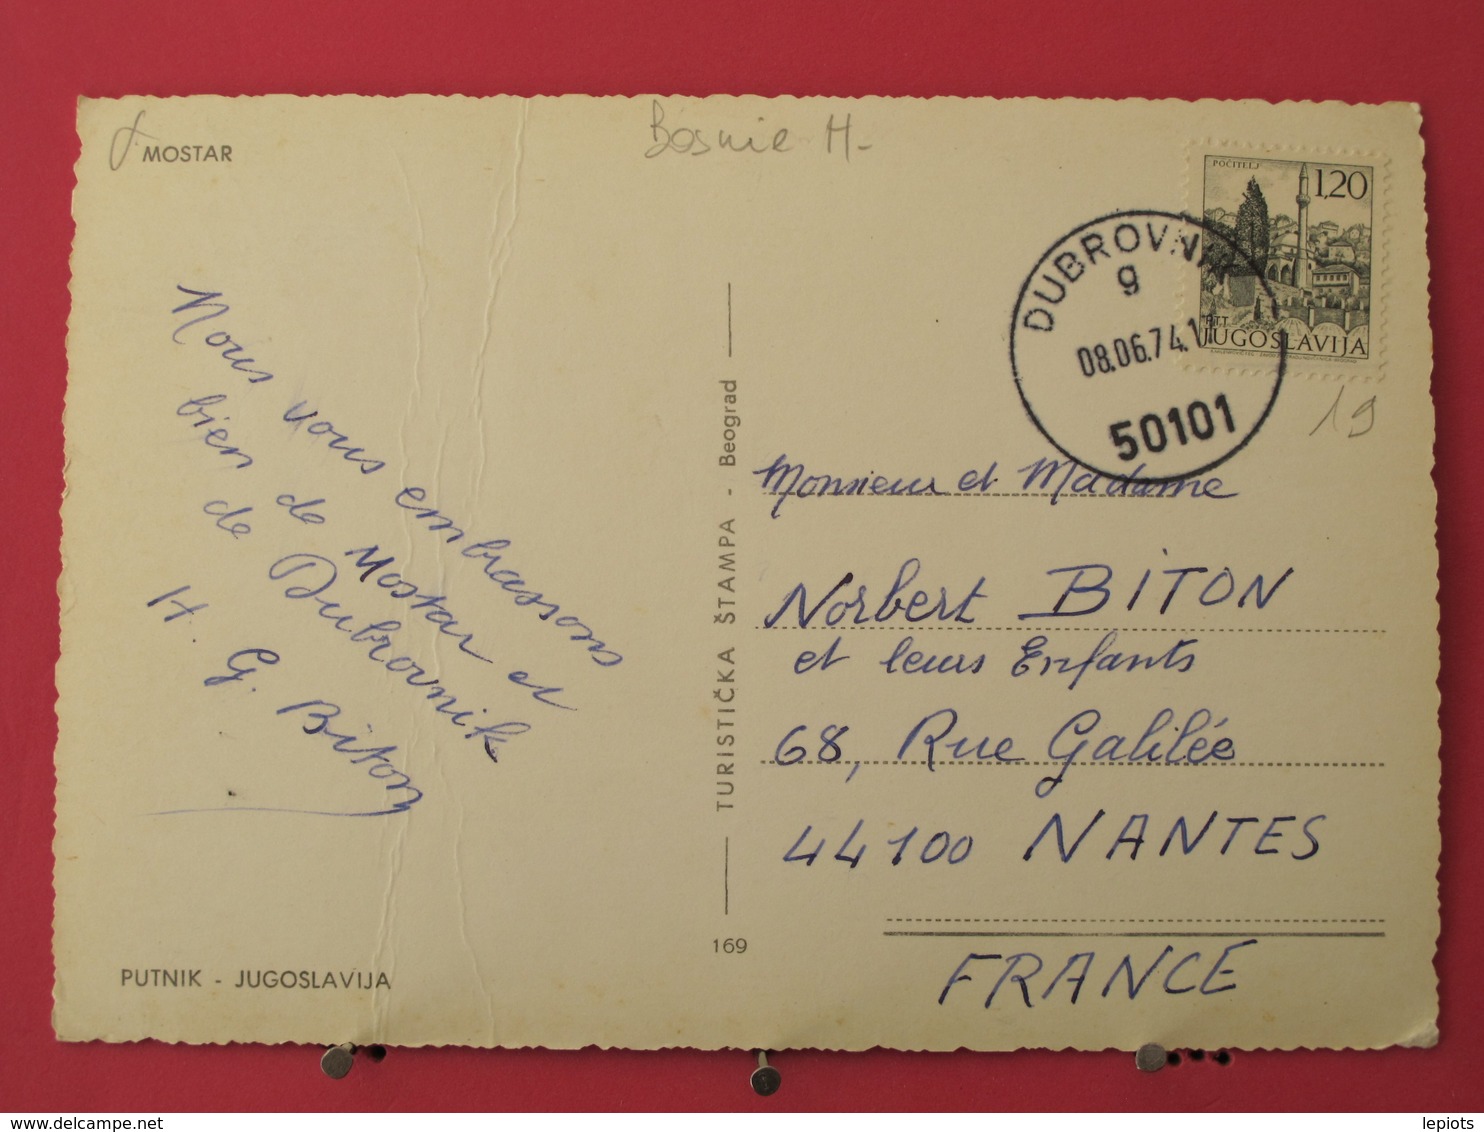 MOSTAR
Bosnie H-
Nous vous embrassons
bien de Mostar et
de Dubrovnik
H. G. Biton
PUTNIK - JUGOSLAVIJA
TURISTIČKA ŠTAMPA - Beograd
169
POČITELJ
1,20
PTT
JUGOSLAVIJA
DUBROVNIK
g
08.06.74.
50101
19
Monsieur et Madame
Norbert BITON
et leurs Enfants
68, Rue Galilée
44100 NANTES
FRANCE
delcampe.net
lepiots